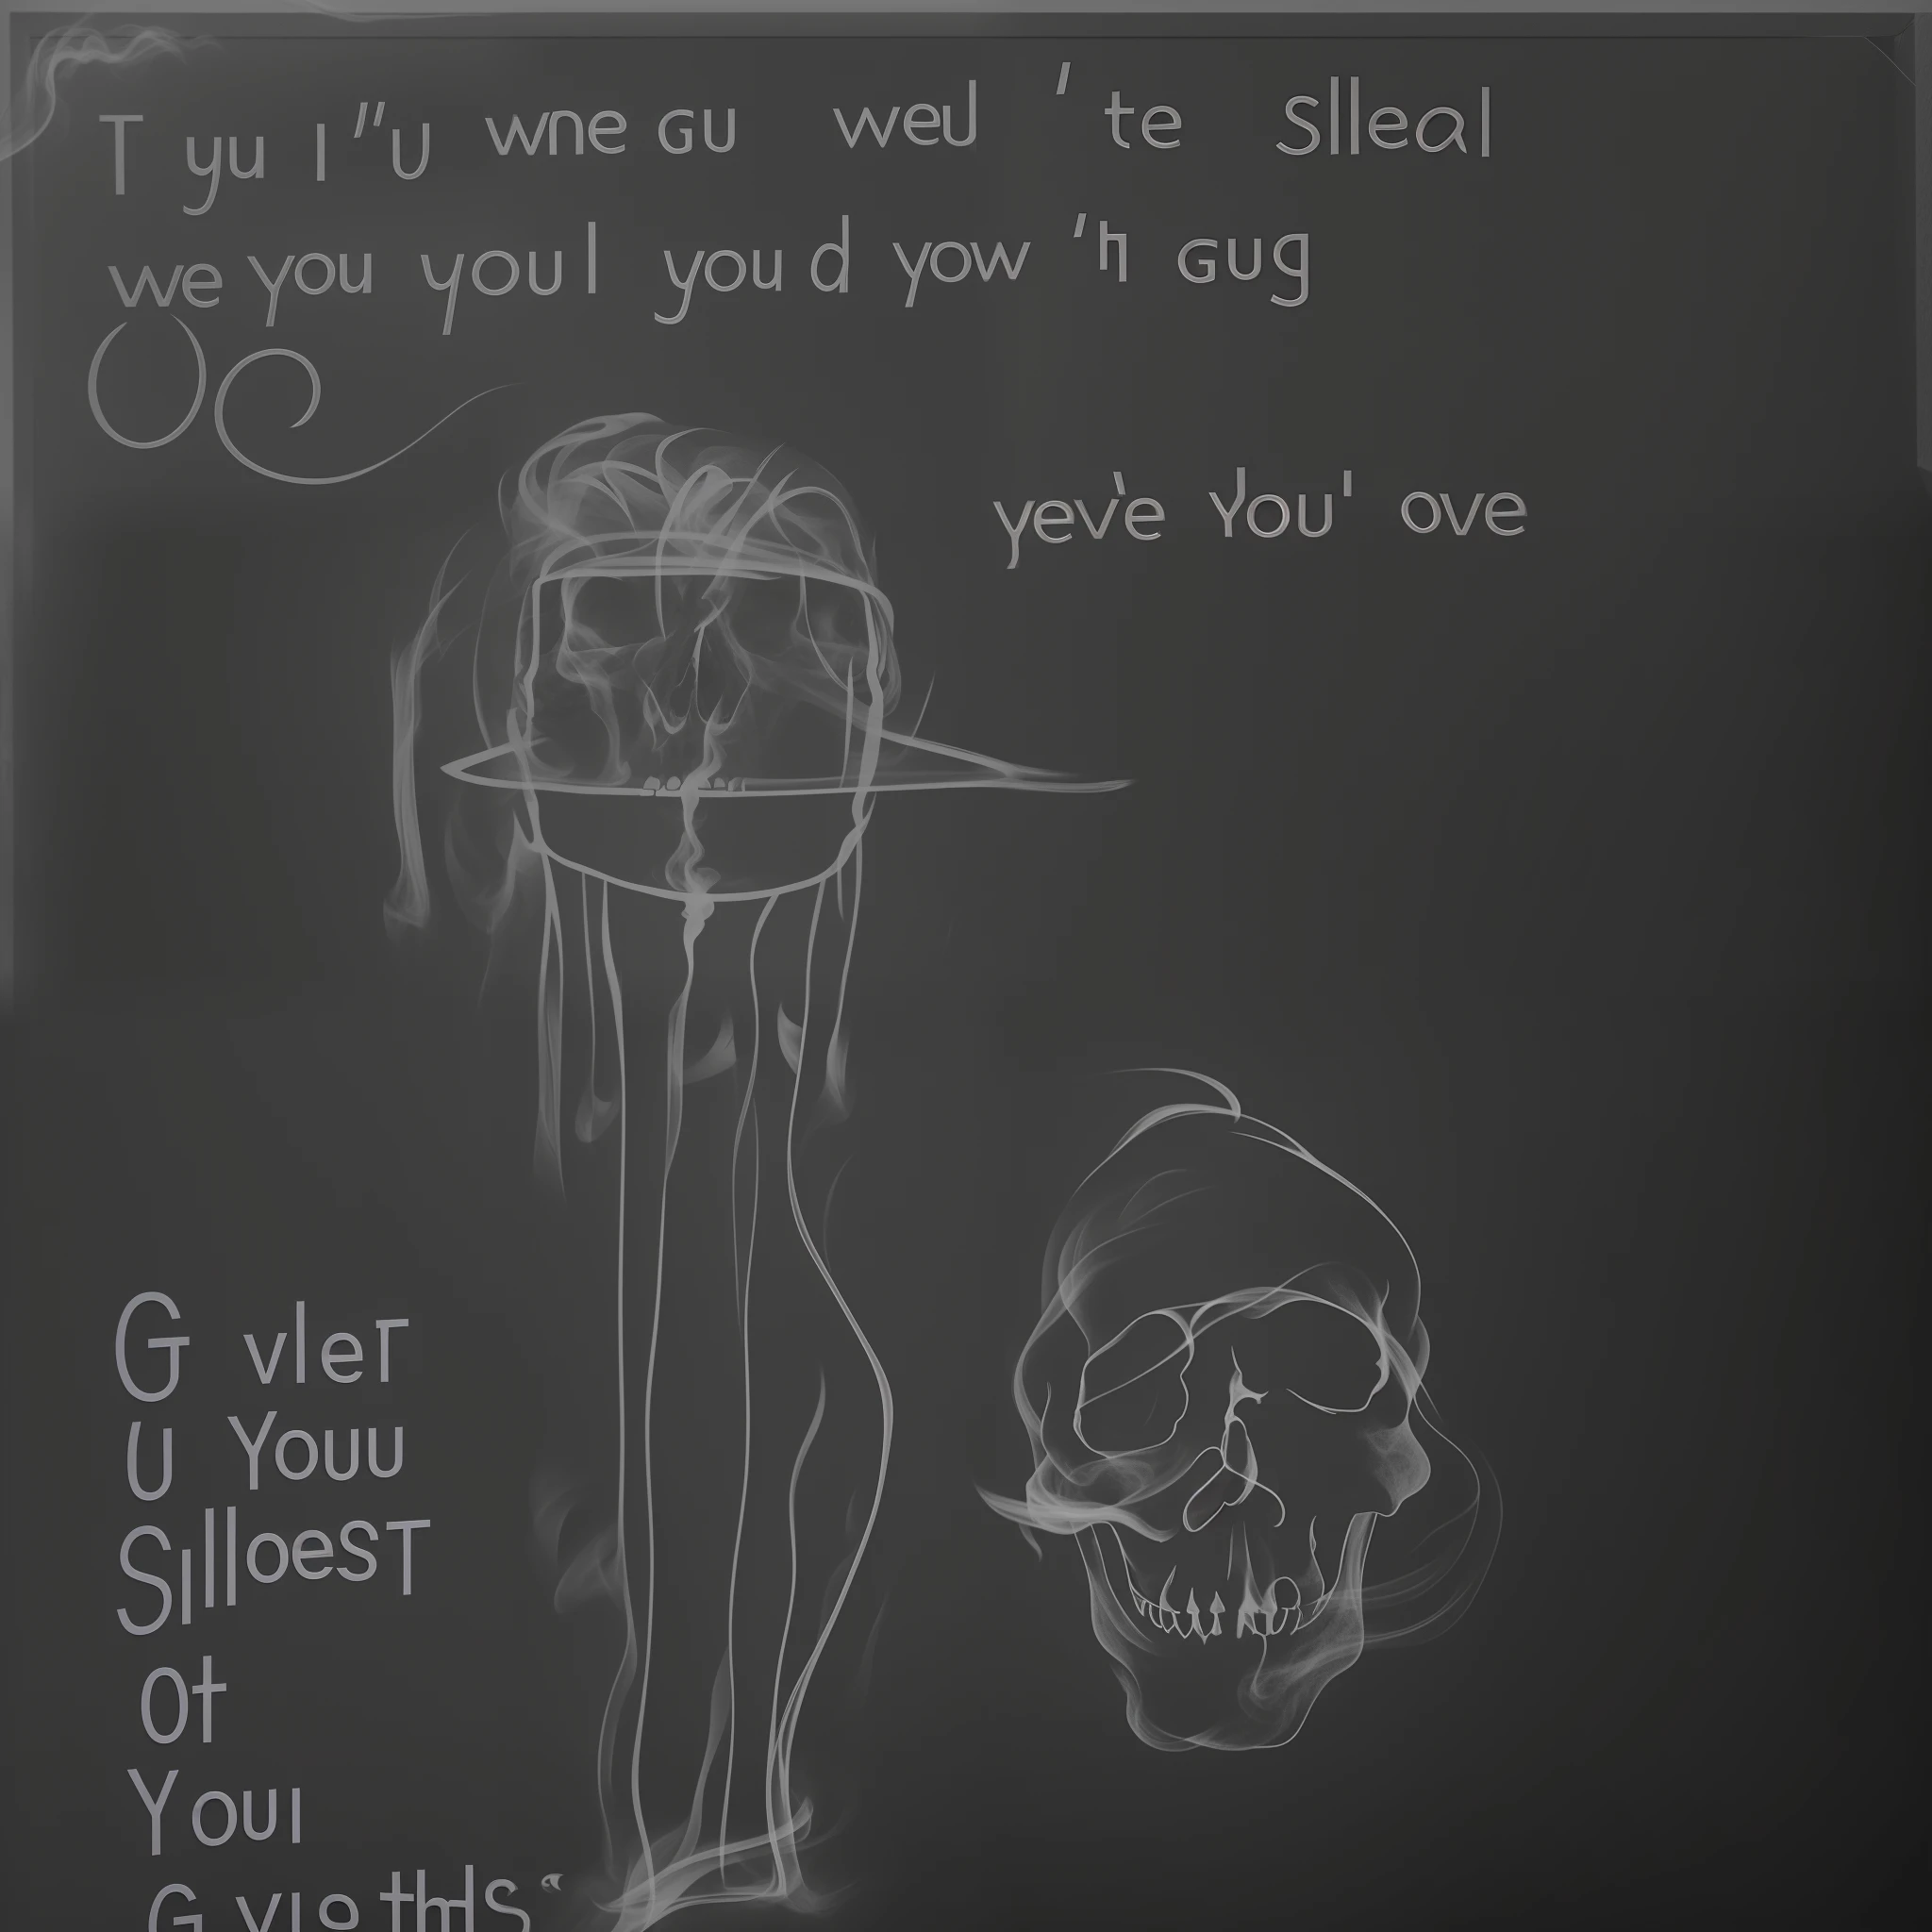 T yu I "U wne GU weU ' te Slleal
we you youl you d yow 'h GUg
yev'e You' ove
G vleT
U Youu
SılloesT
Ot
Youı